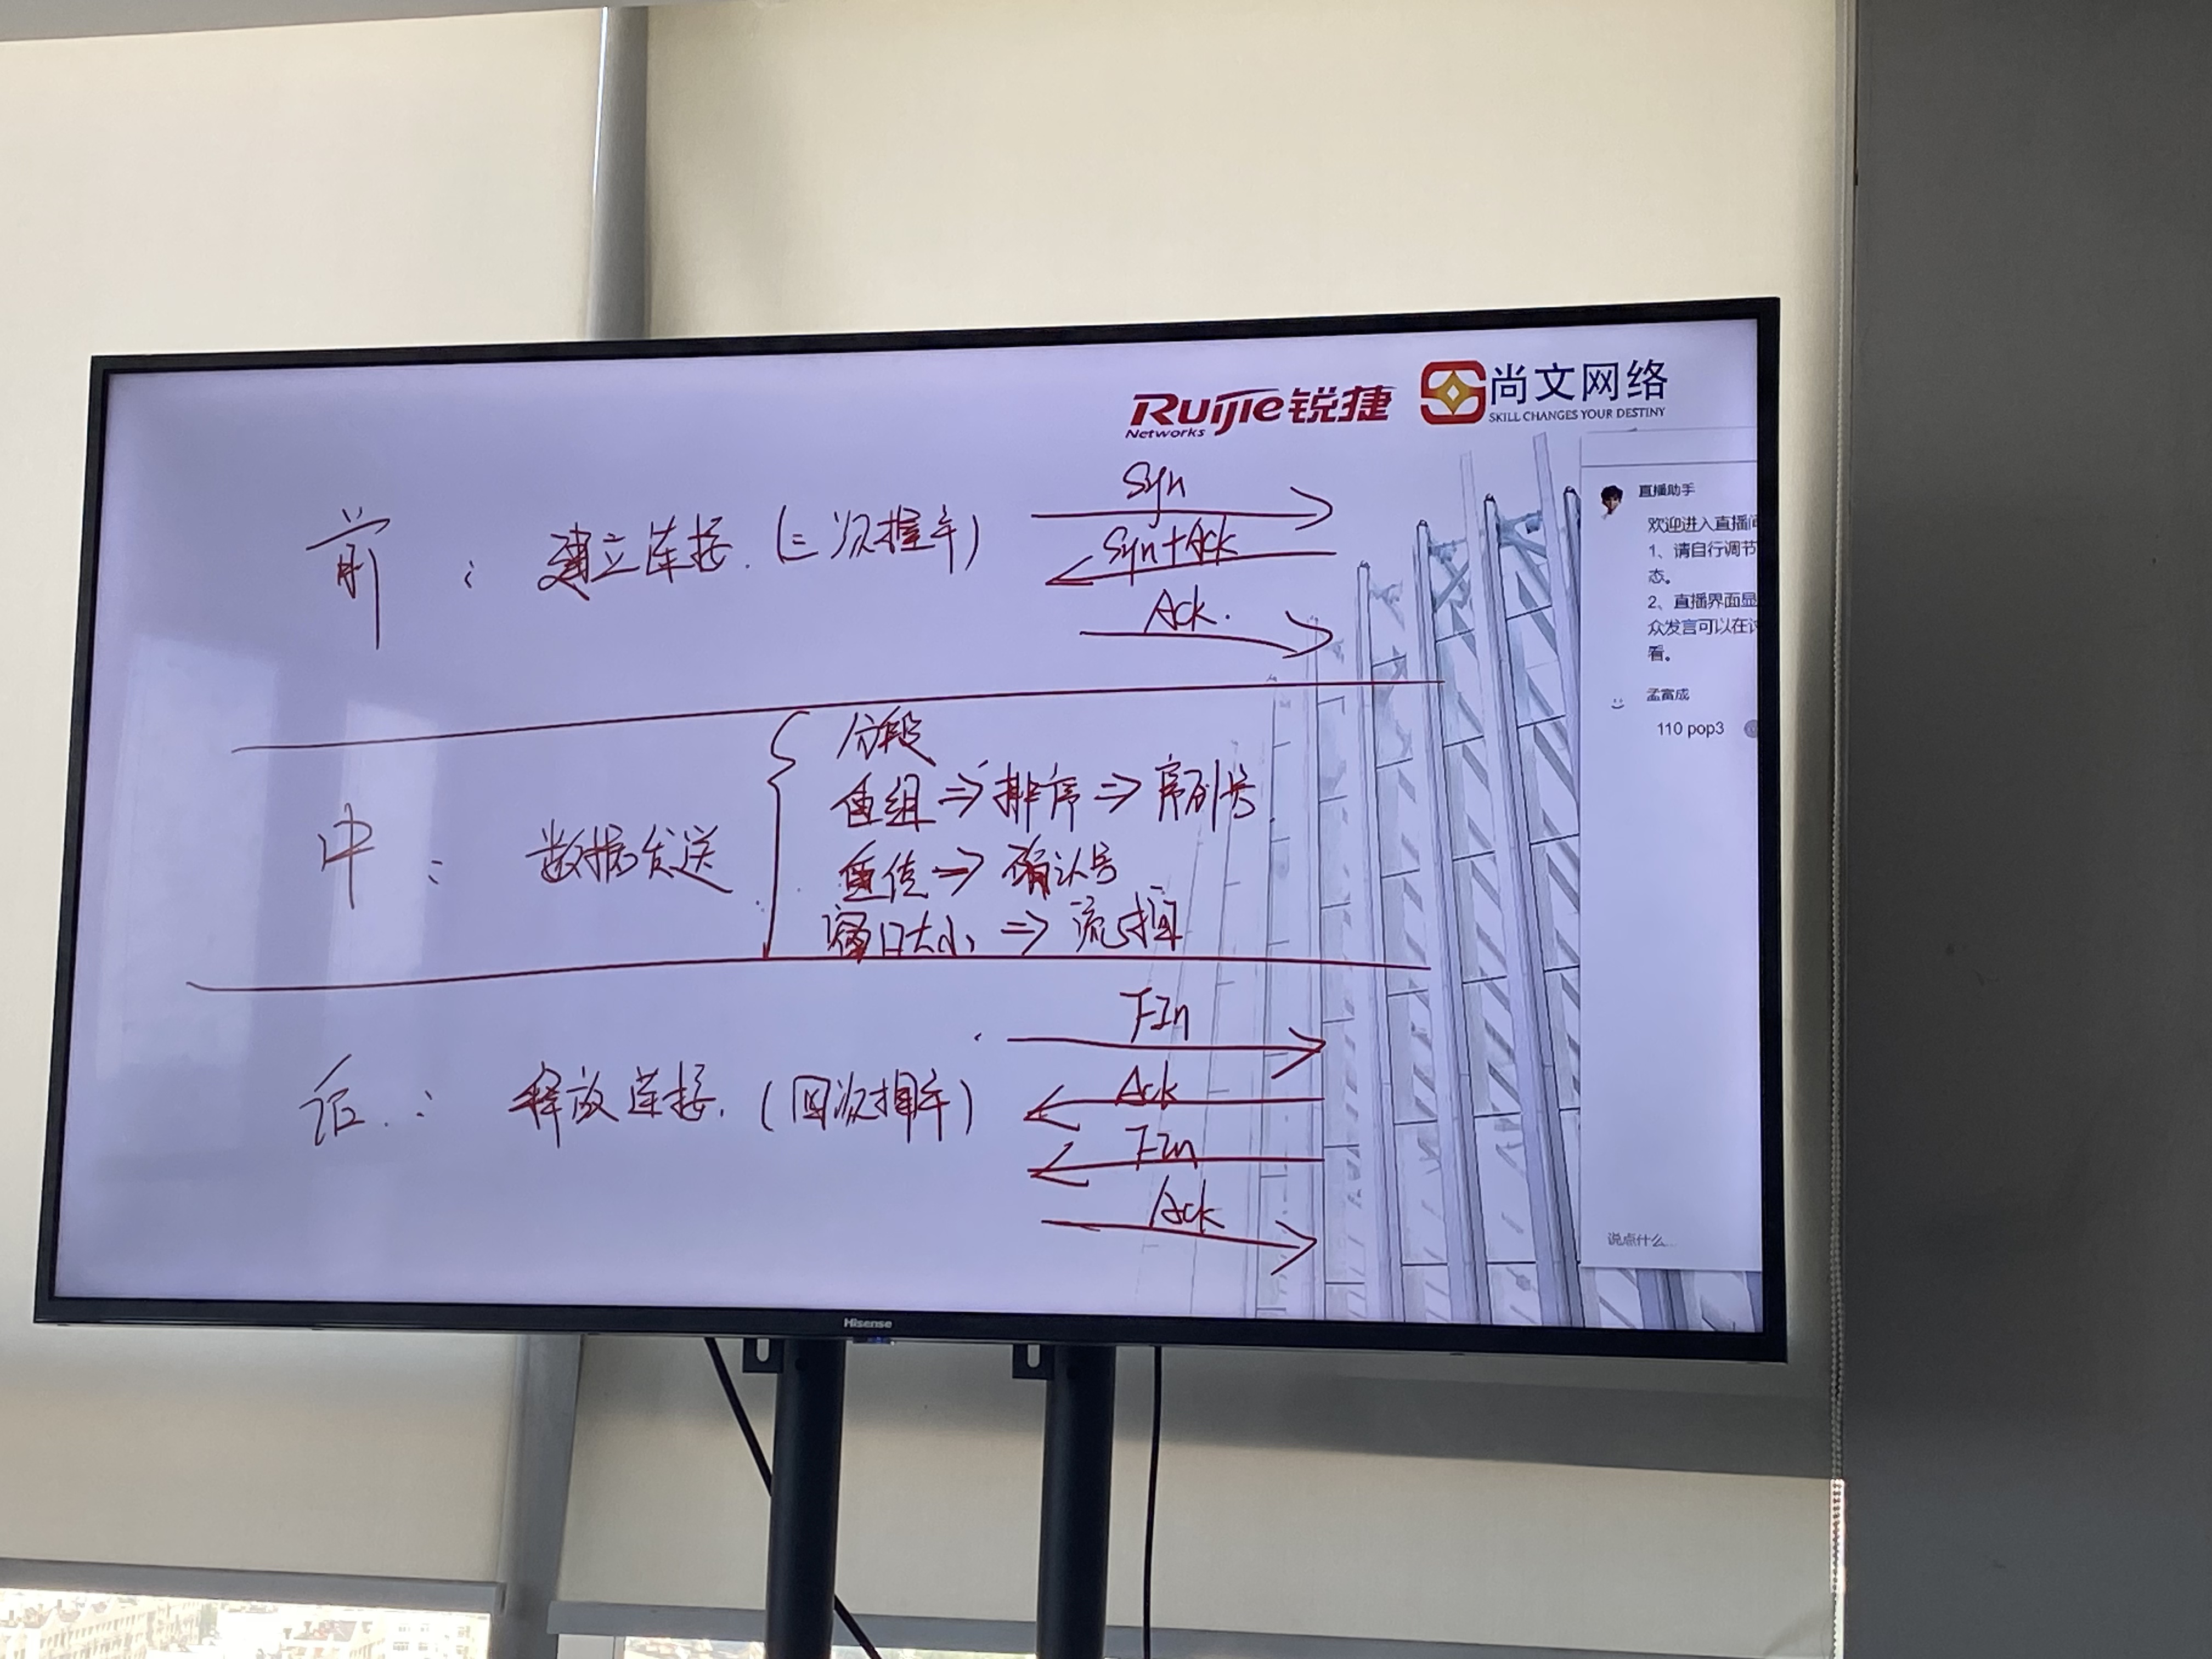 Ruijie锐捷
Networks
尚文网络
SKILL CHANGES YOUR DESTINY
前：建立连接.（三次握手）
Syn
Syn+Ack
Ack.
中：数据发送
分段
重组⇒排序⇒序列号
重传⇒确认号
窗口大小⇒流控
后：释放连接.（四次握手）
FIn
Ack
FIn
Ack
直播助手
欢迎进入直播间
1、请自行调节
态。
2、直播界面显
众发言可以在讨
看。
孟富成
110 pop3
说点什么...
Hisense